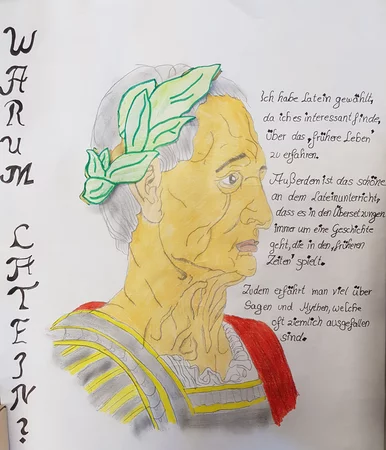 WARUM LATEIN?
Ich habe Latein gewählt,
da ich es interessant finde,
über das "frühere Leben"
zu erfahren.
Außerdem ist das schöne
an dem Lateinunterricht,
dass es in den Übersetzungen
immer um eine Geschichte
geht, die in den "früheren
Zeiten" spielt.
Zudem erfährt man viel über
Sagen und Mythen, welche
oft ziemlich ausgefallen
sind.